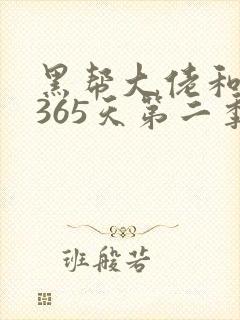 黑帮大佬和
365天第二季
班般若